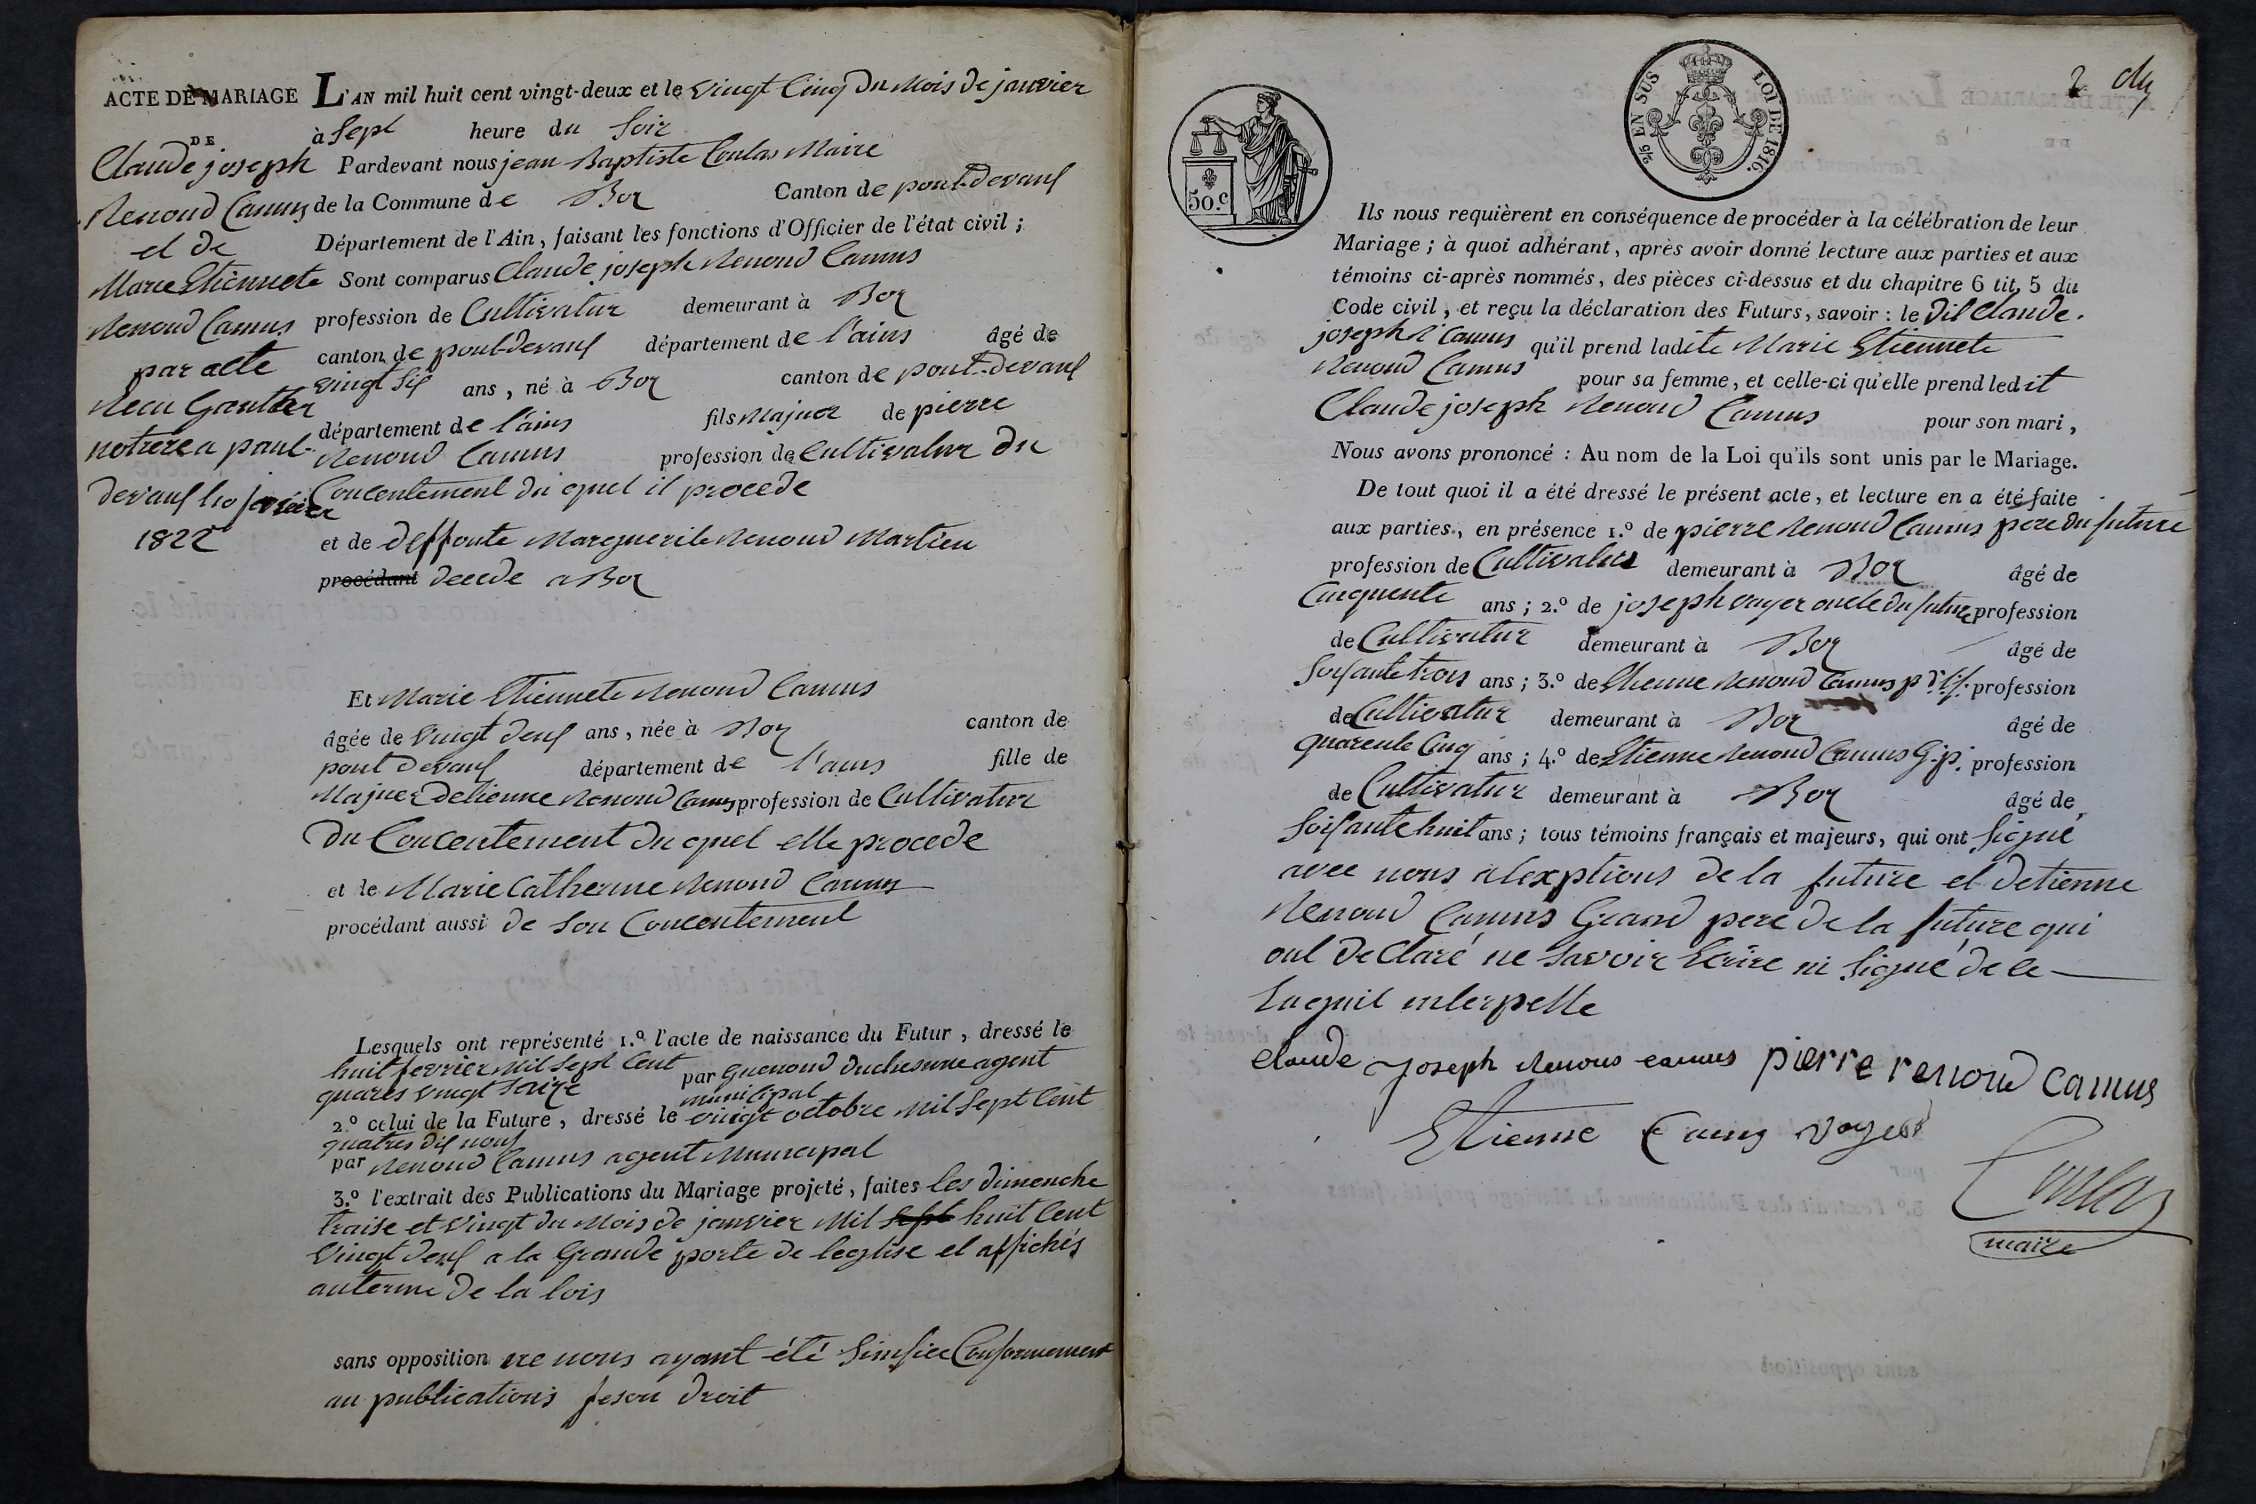 ACTE DE MARIAGE
DE
Claude joseph
Renoud Camus
et de
Marie Etiennete
Renoud Camus
par acte
Recu Gautier
notrere a pont
devaux le 10 janvier
1822
L'AN mil huit cent vingt-deux et le vingt Cinq du Mois de janvier
à Sept heure du Soir
Pardevant nous jean Baptiste Coulas Maire
de la Commune de Boz Canton de pont-devaux
Département de l'Ain, faisant les fonctions d'Officier de l'état civil ;
Sont comparus Claude joseph Renoud Camus
profession de Cultivatur demeurant à Boz
canton de pont-devaux département de l'ains âgé de
vingt six ans, né à Boz canton de pont-devaux
département de l'ains fils Majuer de pierre
Renoud Camus profession de Cultivatur du
Concentement du quel il procede
et de deffonte Marguerite Renoud Martieu
procédant decede a Boz
Et Marie Etiennete Renoud Camus
âgée de vingt deux ans, née à Boz canton de
pont devaux département de l'ains fille de
Majuer detienne Renoud Camus profession de Cultivatur
du Concentement du quel elle procede
et de Marie Catherine Renoud Camus
procédant aussi de son Concentement
Lesquels ont représenté 1.º l'acte de naissance du Futur, dressé le
huit fevrier Mil Sept Cent par Guenoud duchesne agent
quares vingt Saize municipal
2.º celui de la Future, dressé le vingt octobre Mil Sept Cent
quatres dix nouf
par Renoud Camus agent Municipal
3.º l'extrait des Publications du Mariage projeté, faites les dimenche
traise et vingt du Mois de janvier Mil Sept huit Cent
vingt deux a la Grande porte de leglise et affichés
auterme de la lois
sans opposition ne nous ayant été Sinifiée Conformement
au publications feson droit
2
50.c
2/5 EN SUS LOI DE 1816.
Ils nous requièrent en conséquence de procéder à la célébration de leur
Mariage ; à quoi adhérant, après avoir donné lecture aux parties et aux
témoins ci-après nommés, des pièces ci-dessus et du chapitre 6 tit. 5 du
Code civil, et reçu la déclaration des Futurs, savoir : le dit Claude
joseph R Camus qu'il prend ladite Marie Etiennete
Renoud Camus pour sa femme, et celle-ci qu'elle prend ledit
Claude joseph Renoud Camus pour son mari,
Nous avons prononcé : Au nom de la Loi qu'ils sont unis par le Mariage.
De tout quoi il a été dressé le présent acte, et lecture en a été faite
aux parties, en présence 1.º de pierre Renoud Camus pere du future
profession de Cultivateur demeurant à Boz âgé de
Cinquente ans ; 2.º de joseph voyer oncle du future profession
de Cultivatur demeurant à Boz âgé de
Soixante trois ans ; 3.º de Etienne Renoud Camus p profession
de Cultivatur demeurant à Boz âgé de
quarente Cinq ans ; 4.º de Etienne Renoud Camus G.p. profession
de Cultivatur demeurant à Boz âgé de
Soixante huit ans ; tous témoins français et majeurs, qui ont Signé
avec nous alexptions de la future et detienne
Renoud Camus Grand pere de la future qui
ont declaré ne Savoir Ecrire ni Signé de ce
Enquit interpelle
claude joseph Renous camus pierre renoud camus
Etienne Camus voyer
Coulas
maire